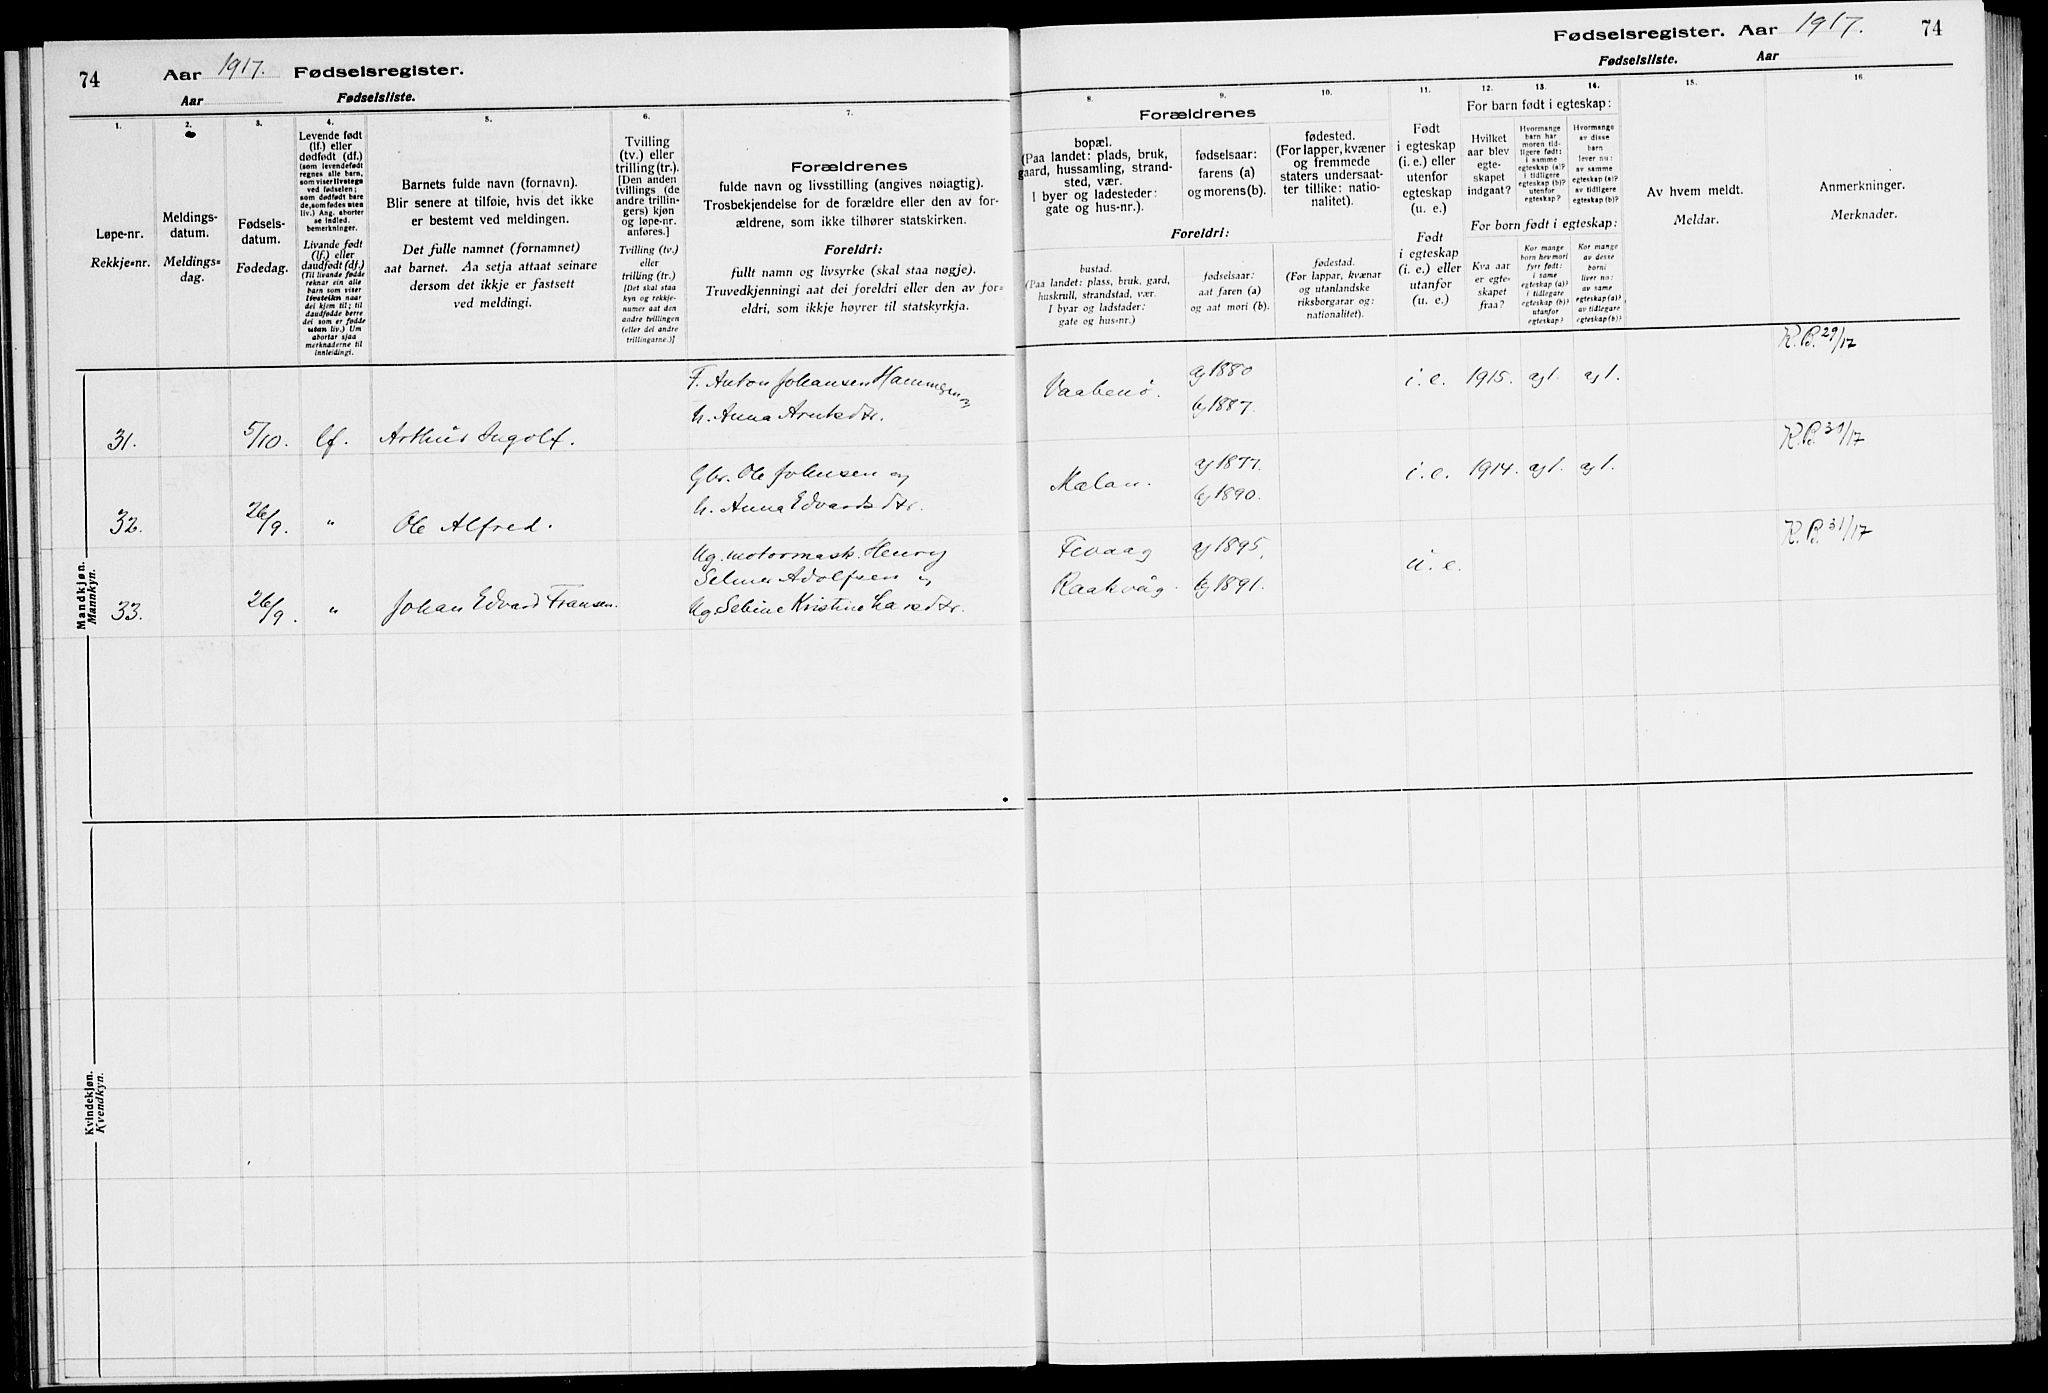 74 Aar 1917. Fødselsregister.
Aar Fødselsliste.
1. 2. 3. 4. 5. 6. 7.
Løpe-nr.
Rekkje=nr.
Meldings-
datum.
Meldings=
dag.
Fødsels-
datum.
Fødedag.
Levende født
(lf.) eller
dødfødt (df.)
(som levendefødt
regnes alle barn,
som viser livstegn
ved fødselen;
som dødfødt bare
de, som fødes uten
liv.) Ang. aborter
se indled.
bemerkninger.
Livande født
(lf.) eller
daudfødt (df.)
(Til livande fødde
reknar ein alle
barn som viser
livsteikn naar
dei kjem til; til
daudfødde berre
dei som er fødde
utan liv.) Um
abortar sjaa
merknaderne til
innleidingi.
Barnets fulde navn (fornavn).
Blir senere at tilføie, hvis det ikke
er bestemt ved meldingen.
Det fulle namnet (fornamnet)
aat barnet. Aa setja attaat seinare
dersom det ikkje er fastsett
ved meldingi.
Tvilling
(tv.) eller
trilling (tr.).
[Den anden
tvillings (de
andre trillin-
gers) kjøn
og løpe-nr.
anføres.]
Tvilling (tv.)
eller
trilling (tr.)
[Det skal staa
kyn og rekkje-
numer aat den
andre tvillingen
(eller dei andre
trillingarne.)]
Forældrenes
fulde navn og livsstilling (angives nøiagtig).
Trosbekjendelse for de forældre eller den av for-
ældrene, som ikke tilhører statskirken.
Foreldri:
fullt namn og livsyrke (skal staa nøgje).
Truvedkjenningi aat dei foreldri eller den av for=
eldri, som ikkje høyrer til statskyrkja.
Mandkjøn.
Mannkyn.
F. Anton Johansen Hammeren og
h. Anna Arntsdtr.
31. 5/10. lf. Arthur Ingolf.
Gbr. Ole Johnsen og
h. Anna Edvardsdtr.
32. 26/9. " Ole Alfred.
Ug. motormask. Henry
Selmer Adolfsen og
Ug Sebine Kristine Larsdtr.
33. 26/9. " Johan Edvard Fransen.
Kvindekjøn.
Kvendkyn.
Fødselsregister. Aar 1917. 74
Fødselsliste. Aar
8. 9. 10. 11. 12. 13. 14. 15. 16.
Forældrenes
bopæl.
(Paa landet: plads, bruk,
gaard, hussamling, strand-
sted, vær.
I byer og ladesteder:
gate og hus-nr.).
fødselsaar:
farens (a)
og morens (b).
fødested.
(For lapper, kvæner
og fremmede
staters undersaat-
ter tillike: natio-
nalitet).
Foreldri:
bustad.
(Paa landet: plass, bruk, gard,
huskrull, strandstad, vær.
I byar og ladstader:
gate og hus=nr.)
fødselsaar:
aat faren (a)
og aat mori (b).
fødestad.
(For lappar, kvænar
og utanlandske
riksborgarar og:
nationalitet).
Født
i egteskap
(i. e.) eller
utenfor
egteskap
(u. e.)
Født
i egteskap
(i. e.) eller
utanfor
(u. e.)
For barn født i egteskap:
Hvilket
aar blev
egte-
skapet
indgaat?
Hvormange
barn har
moren tid-
ligere født:
i samme
egteskap (a)?
i tidligere
egteskap (b)?
utenfor
egteskap?
Hvormange
av disse
barn
lever nu:
av samme
egteskap (a)?
av tidligere
egteskap (b)?
For born født i egteskap:
Kva aar
er egte-
skapet
fraa?
Kor mange
born hev mori
fyrr født:
i same
egteskap (a)?
i tidlegare
egteskap (b)?
utanfor
egteskap?
Kor mange
av desse
borni
liver no:
av same
egteskap (a)?
av tidlegare
egteskap (b)?
Av hvem meldt.
Meldar.
Anmerkninger.
Merknader.
Vaabenø. a) 1880 i. e. 1915. a) 1. a) 1. K. B. 29/17
b) 1887.
Mælan. a) 1877. i. e. 1914. a) 1. a) 1. K. B. 31/17
b) 1890.
Fevaag a) 1895. u. e. K. B. 31/17
Raakvåg. b) 1891.